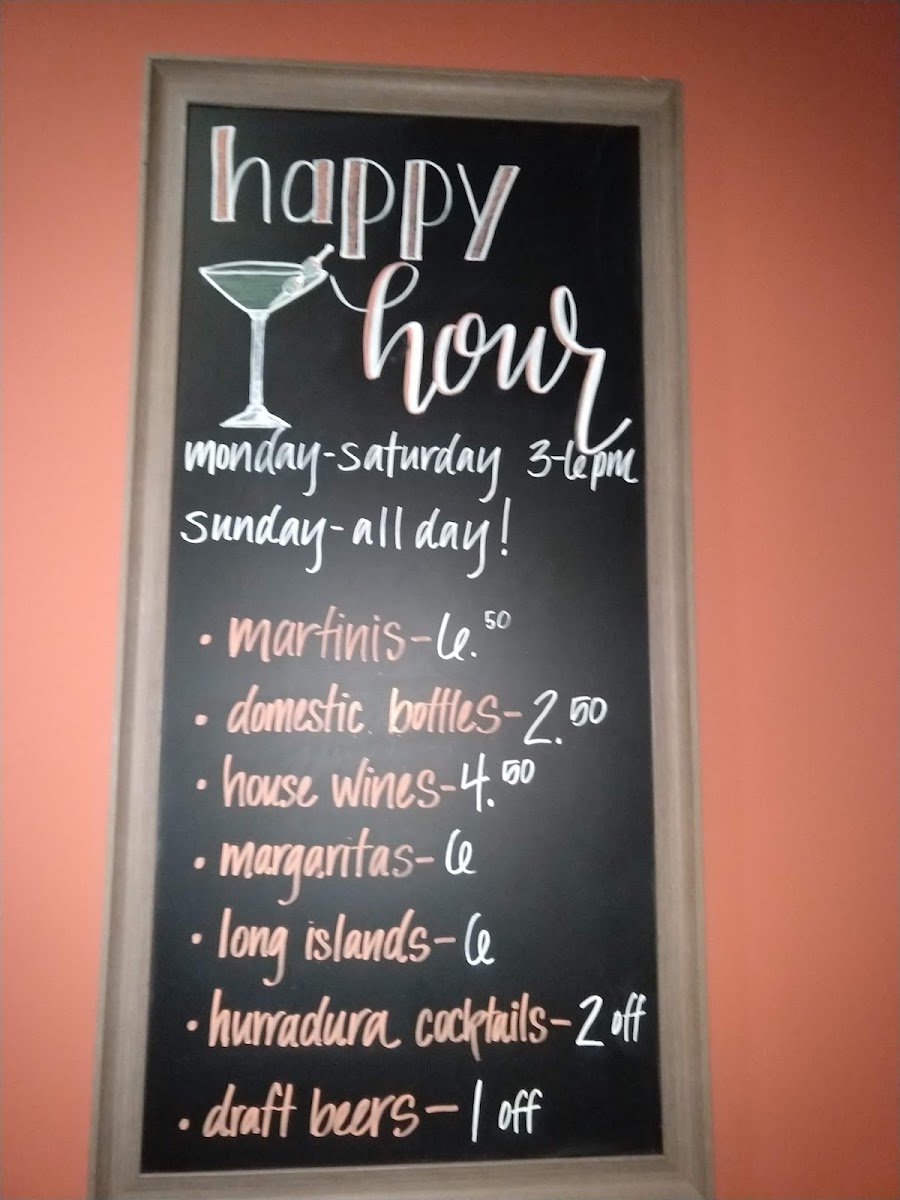 happy
hour
monday-saturday 3-6pm
sunday-all day!
• martinis-6.50
• domestic bottles-2.50
• house wines-4.50
• margaritas-6
• long islands-6
• hurradura cocktails-2 off
• draft beers-1 off